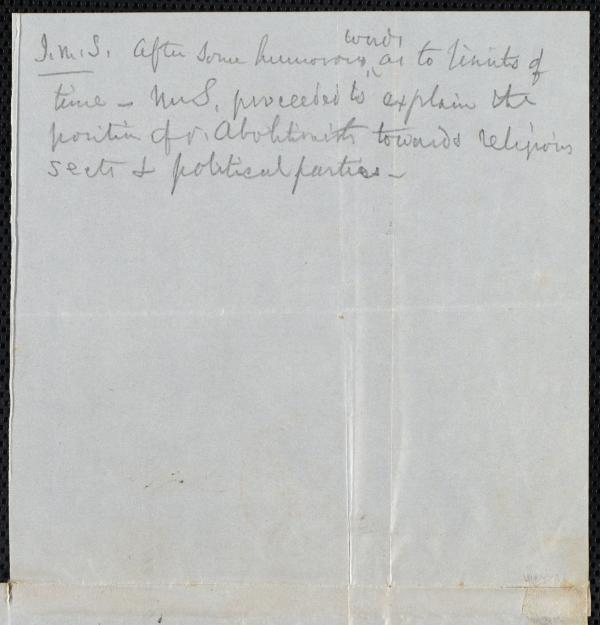 J.M.S. After some humorous words as to limits of
time – Mr S. proceeded to explain the
position of Abolitionists towards religious
sects & political parties –